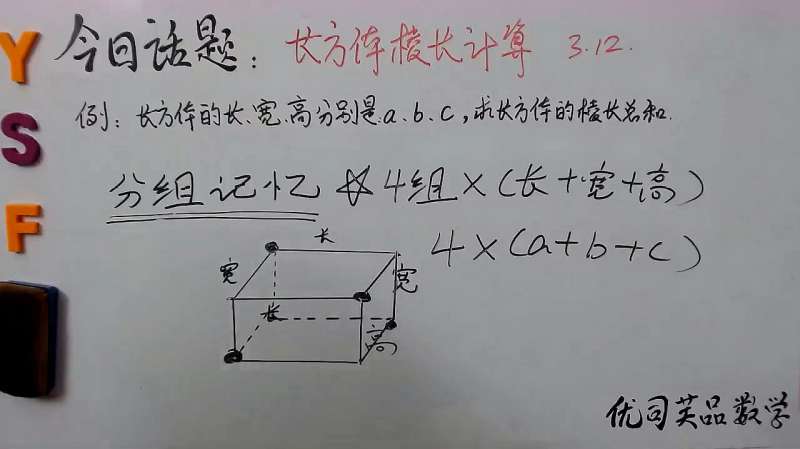 Y
S
F
今日话题：长方体棱长计算 3.12.
例：长方体的长、宽、高分别是a、b、c，求长方体的棱长总和.
分组记忆 ☆ 4组×（长+宽+高）
4×（a+b+c）
长
宽
宽
长
高
优司芙品数学